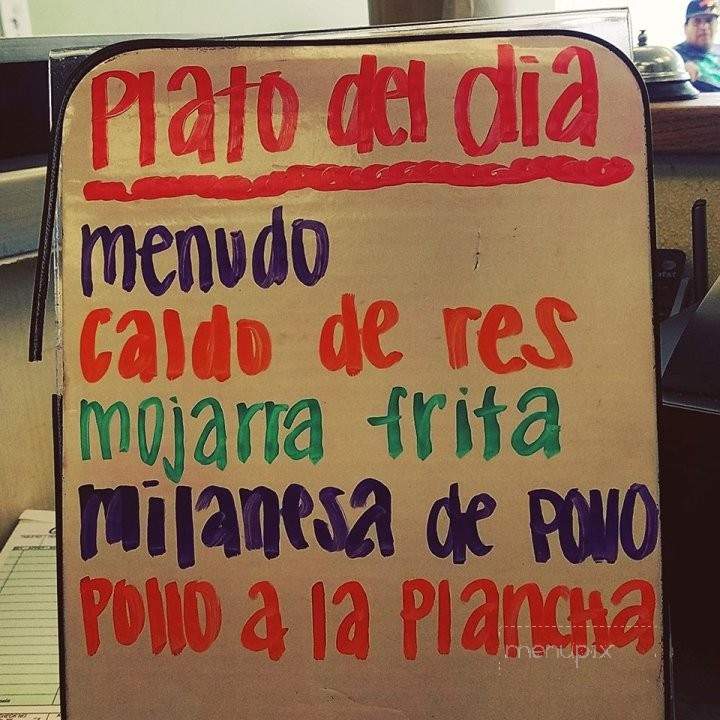 Plato del dia
menudo
Caldo de res
mojarra frita
milanesa de pollo
Pollo a la plancha
menupix